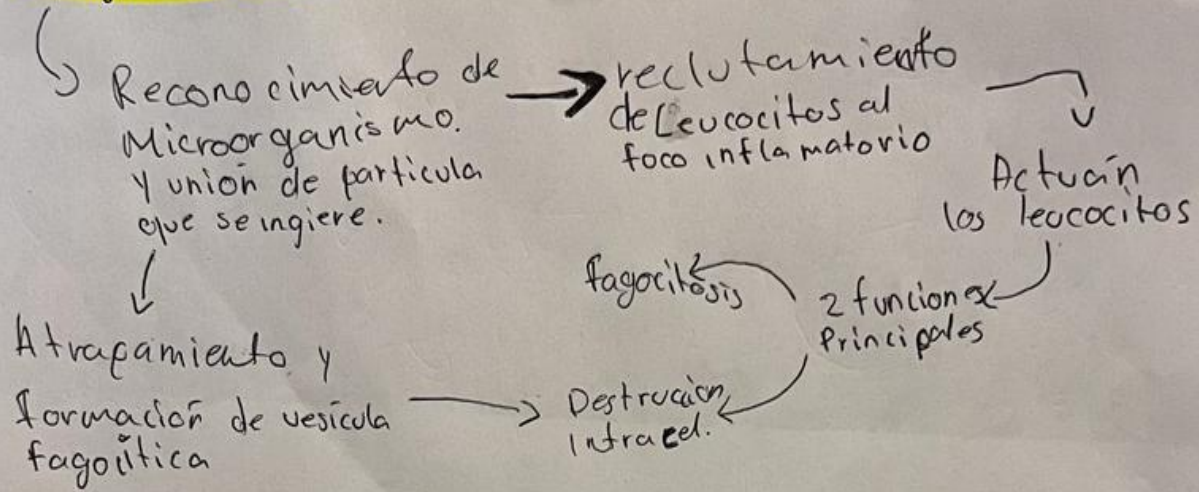 Reconocimiento de
Microorganismo.
y unión de particula
que se ingiere.
reclutamiento
de Leucocitos al
foco inflamatorio
Actuán
los leucocitos
2 funciones
Principales
fagocitósis
Destrucción
Intracel.
Atrapamiento y
formación de vesícula
fagocítica